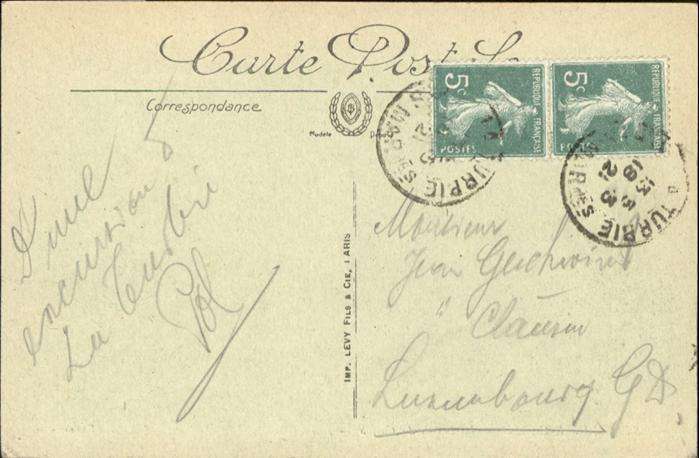 Carte Postale
Correspondance
Modèle Déposé
5c
POSTES
REPUBLIQUE FRANÇAISE
5c
REPUBLIQUE FRANÇAISE
TURBIE
13 5
21
TURBIE
18
13 5
21
D'une
excursion à
La Turbie
Pol
IMP. LEVY FILS & CIE, PARIS
Monsieur
Jean
à Clausen
Luxembourg G D